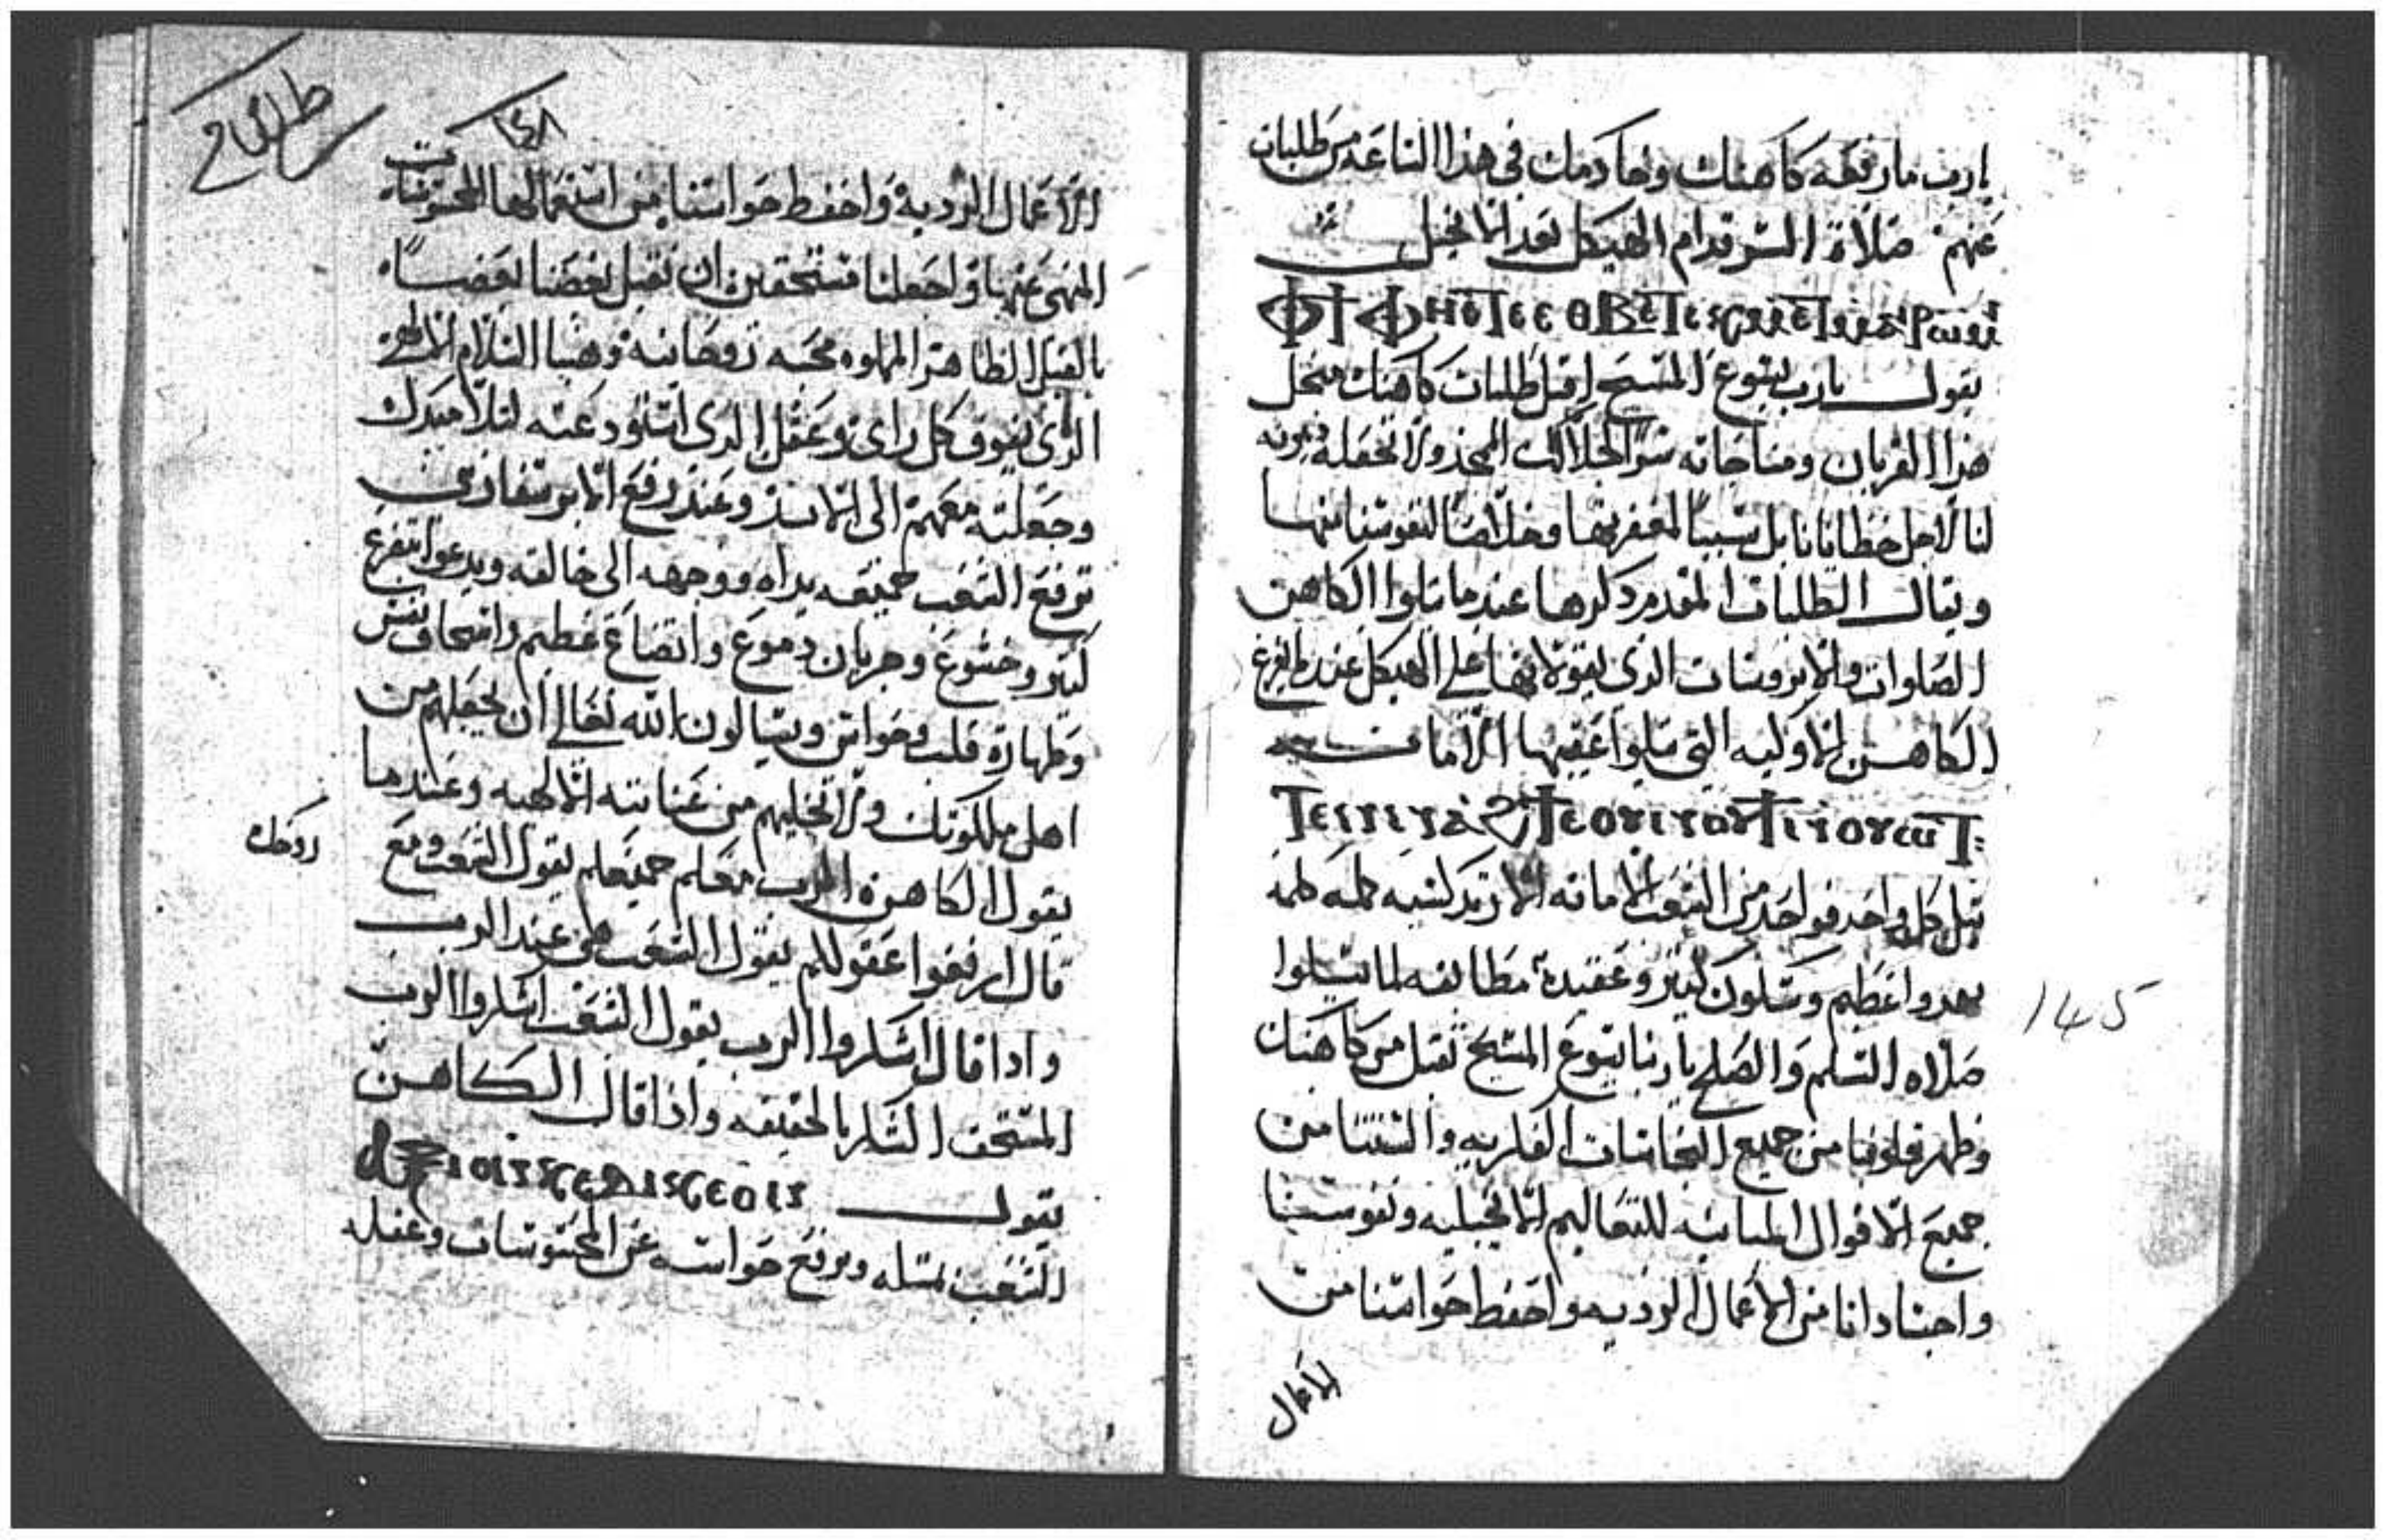 يارب ما رفعه كاهنك وخادمك في هذا الساعه من طلبات
عنهم صلاة السر قدام الهيكل بعد الانجيل
ⲫϯ ⲫⲏⲉⲧⲉ
يقول يارب يسوع المسيح اقبل طلبات كاهنك
هذا القربان ومناجاته سر لجلالك المجد ولا تجعله دينونه
لنا لاجل خطايانا بل سبباً لمغفرتها وخلاصاً لنفوسنا منها
وتقال الطلبات المقدم ذكرها عندما يتلوا الكاهن
الصلوات والابروسات الذي يقولانها علي الهيكل عند
الكاهن الاوليه التي يتلوا عقيبها الامانه
يتل كل واحد فواحد من الشعب الامانه الارتدكسيه كلمه كلمه
بهدوا عظيم وسكون كتير وعقيدة مطابقه لما يتلوا
صلاه التسليم والصلح يا ربنا يسوع المسيح تقبل من كاهنك
وطهر قلوبنا من جميع النجاسات الفكريه والسنتنا من
جميع الاقوال المباينه للتعاليم الانجيليه ونفوسنا
واجسادانا من الاعمال الرديه واحفظ حواسنا من
الاعمال
145
١٤٨
الاعمال الرديه واحفظ حواسنا من استعمالها المحسوسات
المنهى عنها واجعلنا مستحقين ان نقبل بعضنا بعضاً
بالقبل الطاهره المملوه محبه روحانيه وهبنا السلام الالهي
الذي يفوق كل راي وعقل الذي استودعته لتلاميذك
وجعلته معهم الى الابد وعند رفع الابرسفارين
ترفع الشعب جميعه يداه ووجهه الى خالقه ويدعوا بتضرع
كتير وخشوع وجريان دموع واتضاع عظيم وانسحاق نفس
وطهارة قلب وحواس ويسالون الله تعالى ان يجعلهم من
اهل ملكوتك ولا تخليهم من عنايته الالهيه وعندما
يقول الكاهن الرب معكم جميعكم يقول الشعب ومع
روحك
قال ارفعوا عقولكم يقول الشعب هي عند الرب
واذا قال اشكروا الرب يقول الشعب اشكروا الرب
المستحق الشكر بالحقيقه واذا قال الكاهن
يقول
الشعب مثله ويرفع حواسه عن المحسوسات وعقله